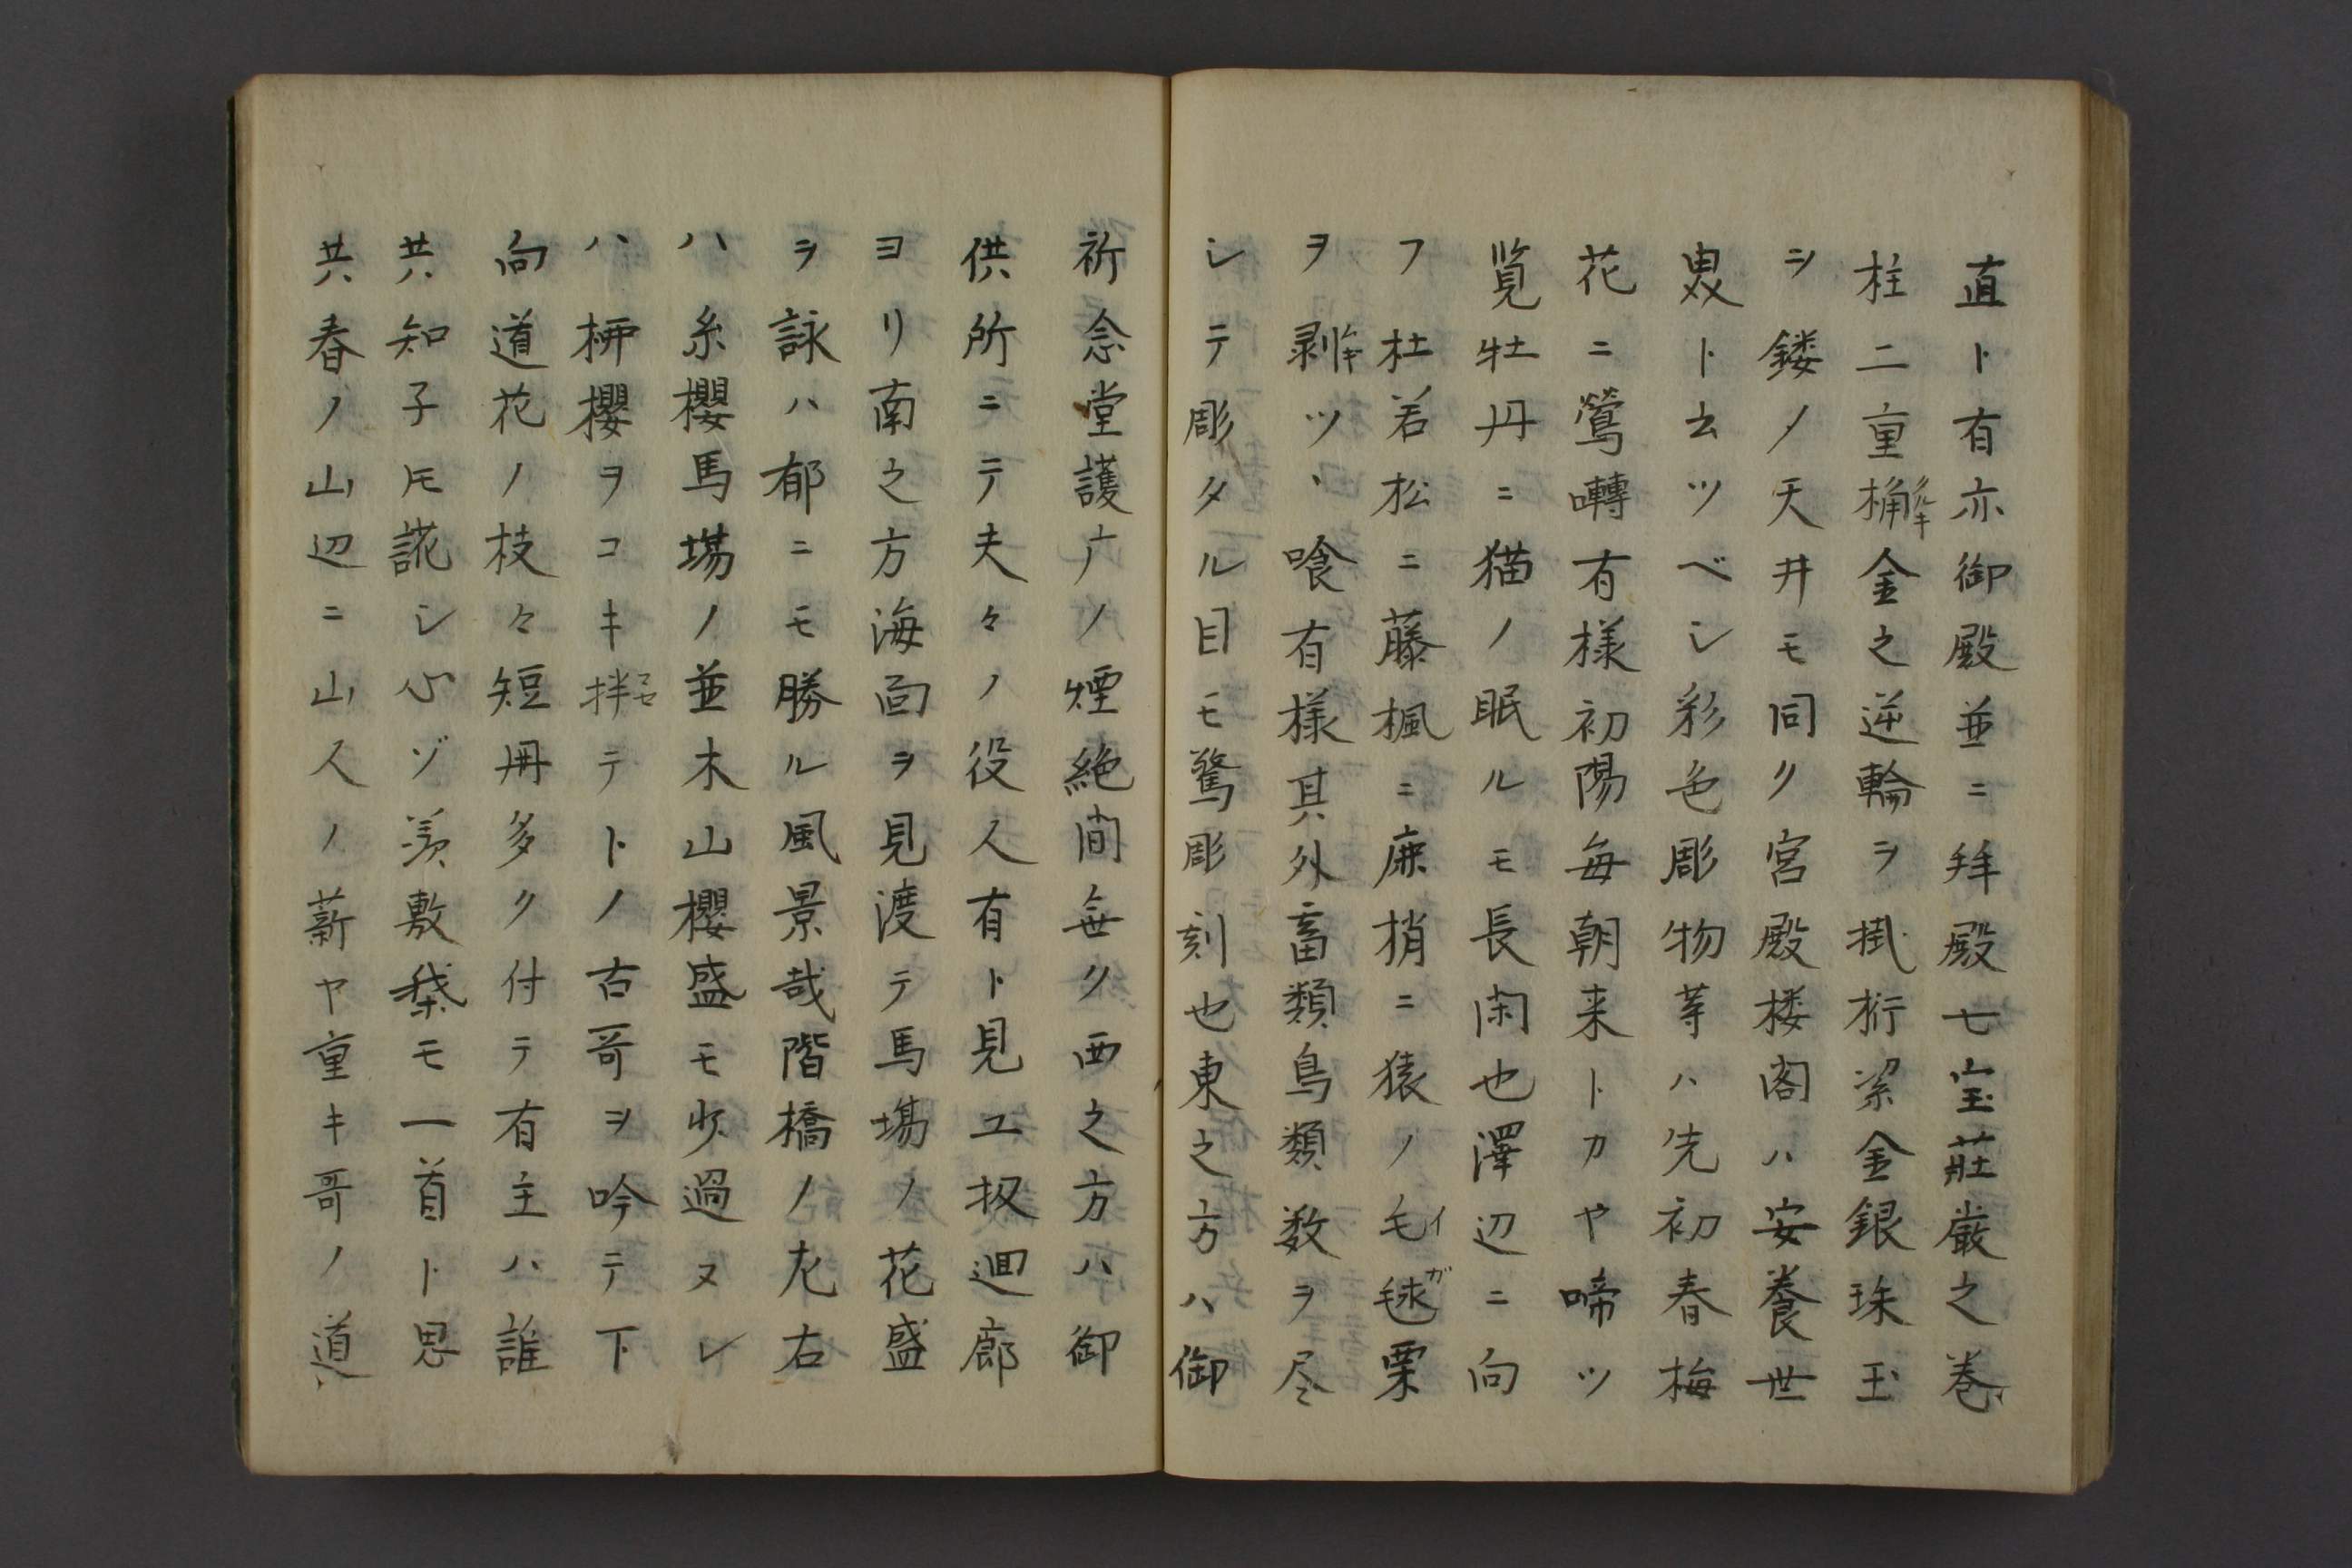 直ト有亦御殿並ニ拜殿七宝莊嚴之巻
柱二重桷クルキ金之逆輪ヲ掛桁梁金銀珠玉
シ鏤ノ天井モ同ク宮殿楼閣ハ安養世
界ト云ツベシ彩色彫物等ハ先初春梅
花ニ鶯囀有様初陽毎朝来トカヤ啼ツ
覧牡丹ニ猫ノ眠ルモ長閑也澤辺ニ向
フ杜若松ニ藤楓ニ鹿梢ニ猿ノ毛イ毬ガ栗
ヲ剥ムキツヽ喰有様其外畜類鳥類数ヲ尽
シテ彫タル目モ驚彫刻也東之方ハ御
祈念堂護广ノ煙絶間無ク西之方ハ御
供所ニテ夫々ノ役人有ト見エ扨廻廊
ヨリ南之方海面ヲ見渡テ馬場ノ花盛
ヲ詠ハ郁ニモ勝ル風景哉階橋ノ左右
ハ糸櫻馬場ノ並木山櫻盛モ少過ヌレ
ハ栴櫻ヲコキ拌マセテトノ古哥ヲ吟テ下
向道花ノ枝々短冊多ク付テ有主ハ誰
共知子𪜈詫シ心ゾ羨敷桑モ一首ト思
共春ノ山辺ニ山人ノ薪ヤ重キ哥ノ道